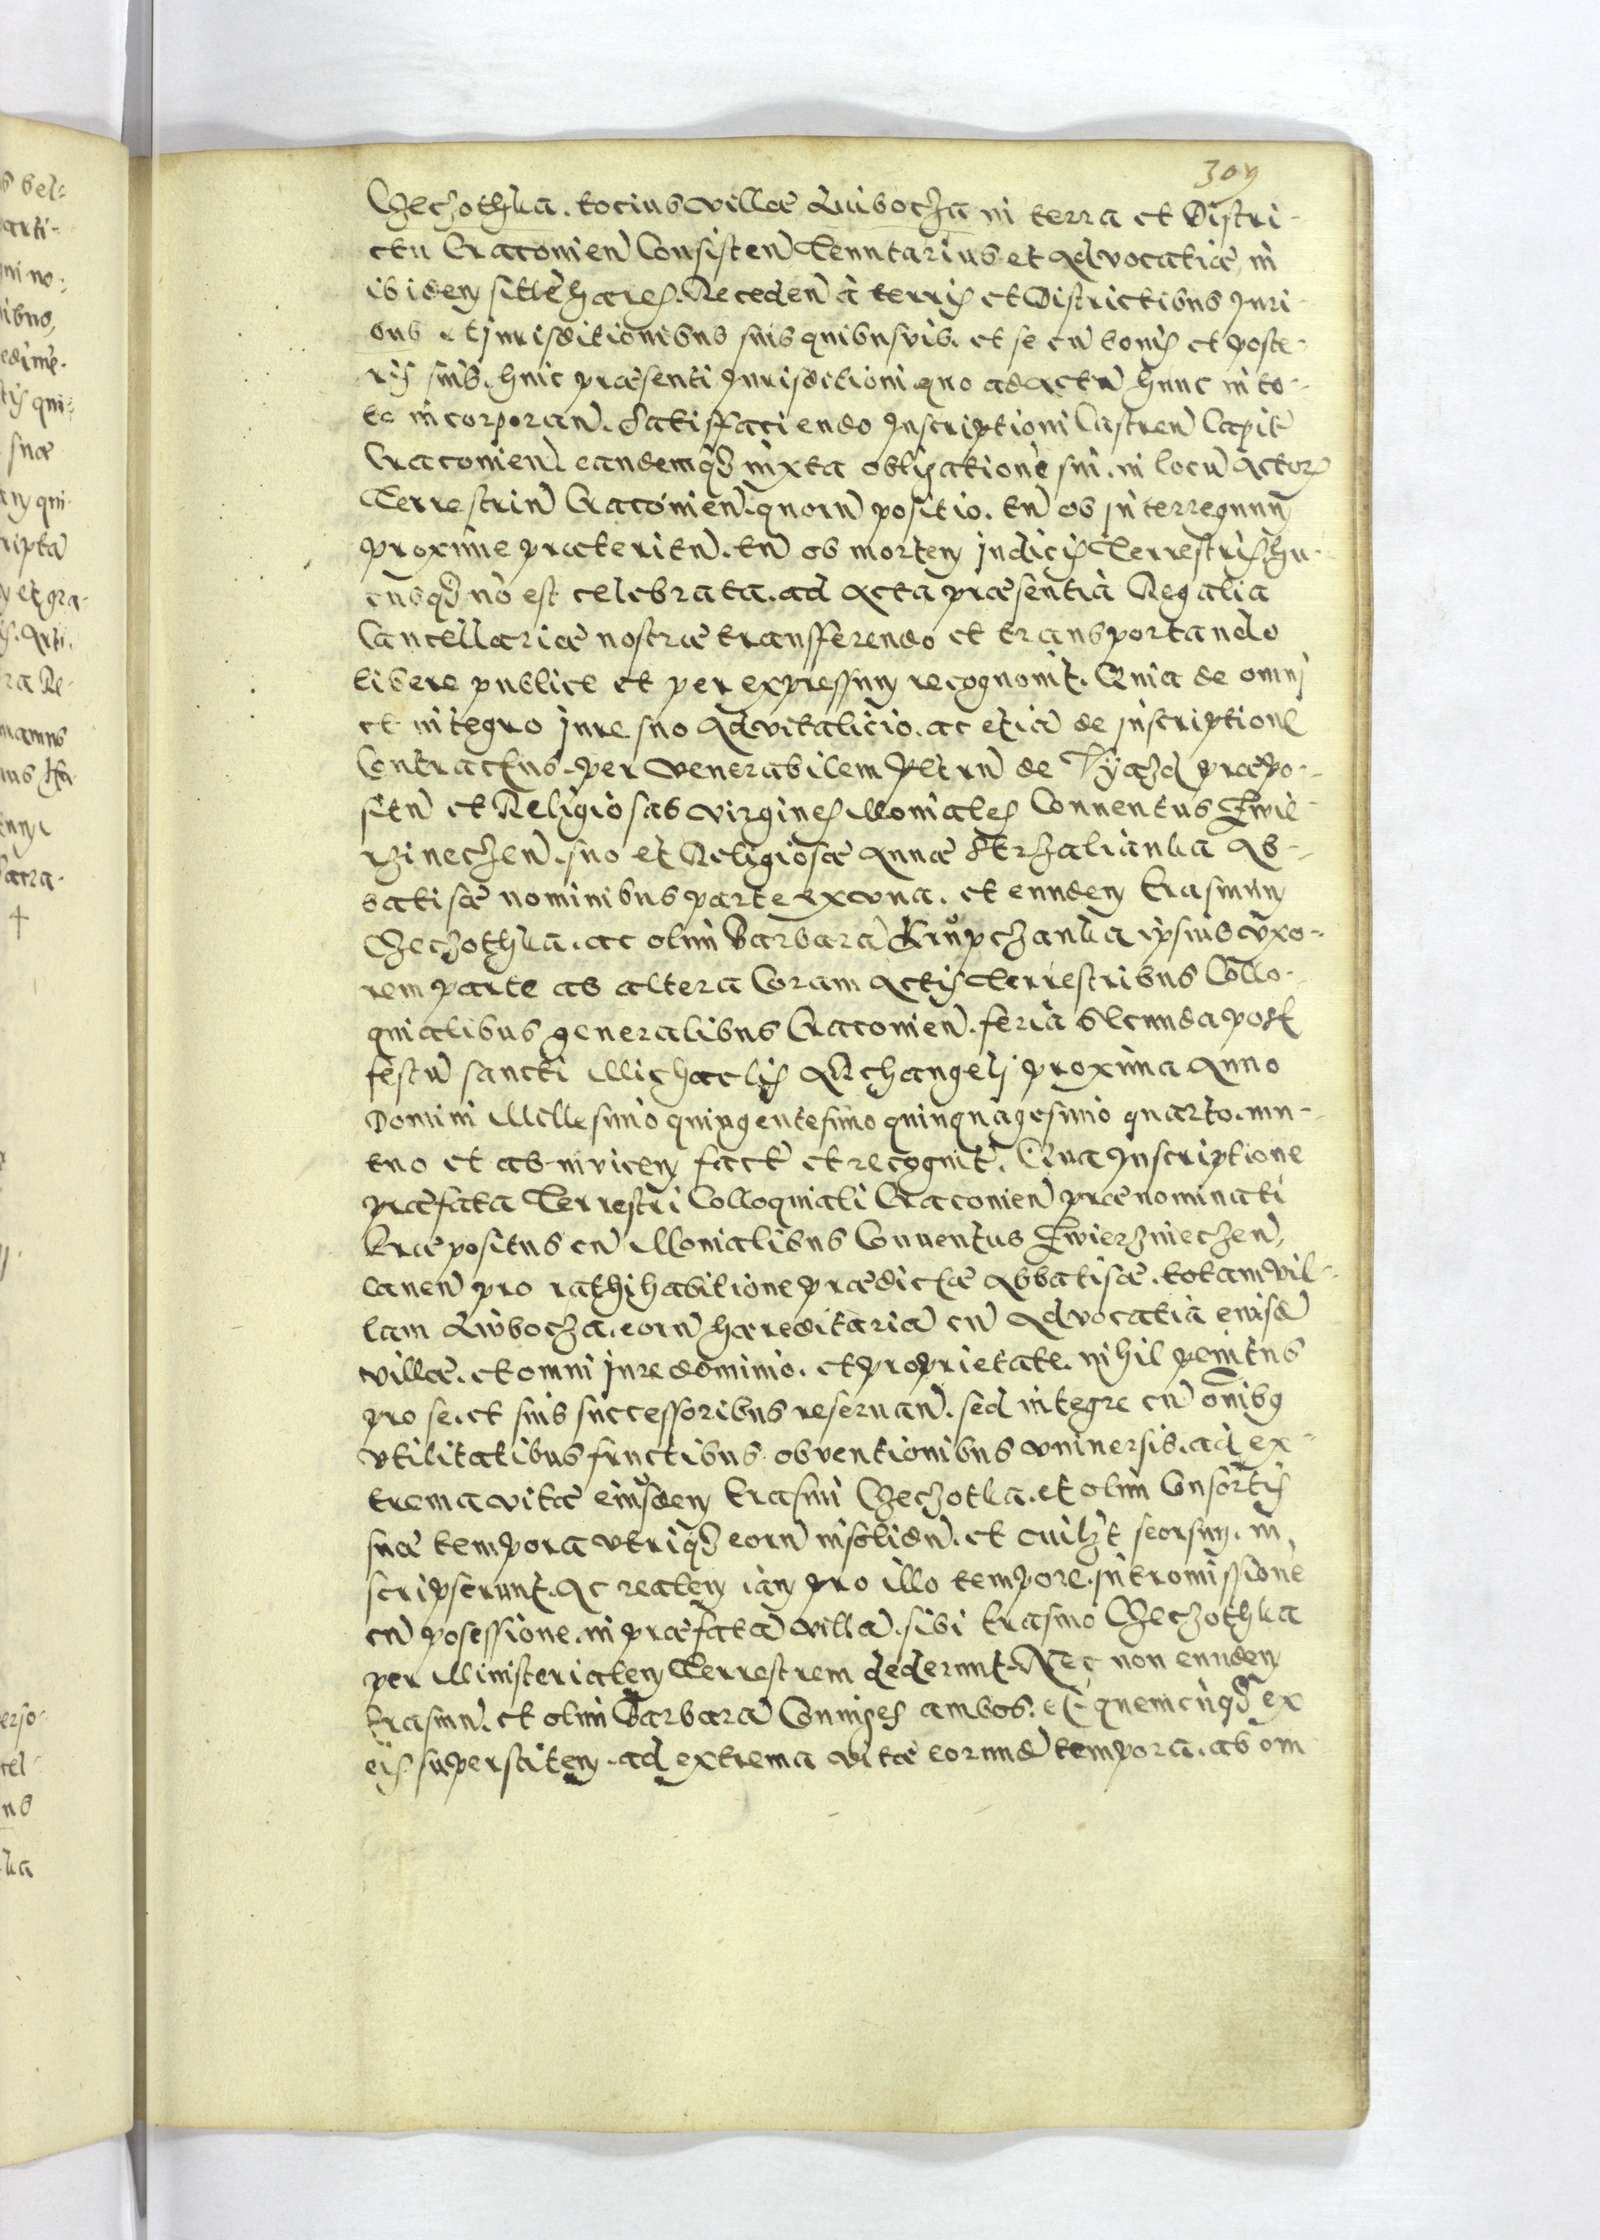 309
Czeczothka. tocius villæ Luiboczã in terra et Distri-
ctu Cracovien̄ Consisten̄ Tenutarius et Advocatiæ in
ibidem sitæ hæres. Receden̄ à terris et Districtibus Juri-
bus et Jurisditionibus suis quibusvis. et se cū bonis et poste-
ris suis. huic præsenti Jurisdictioni quo ad actū hunc in to-
to incorporan̄. Satisffaciendo Inscriptioni Castren̄ Capit̄
Cracovien̄. eandemq̄ iuxta obligationē sui. in locū Actor
Terrestriū Cracovien̄. quorū positio. tū ob interregnum
proxime præteritū. tū ob mortem Judicis Terrestris hu-
cusq̄ nō est celebrata. ad Acta præsentia Regalia
Cancellariæ nostræ transfferendo et transportando
libere publice et per expressum recognovit. Quia de omnj
et integro Jure suo Advitalicio. ac etiā de inscriptione
Contractus. per Venerabilem Petrū de Vyazd præpo-
sitū et Religiosas Virgines Moniales Conventus Zwie-
rzineczen̄. suo et Religiosæ Annæ Strzalianka Ab-
batisæ nominibus parte ex una. et eundem Erasmum
Czeczothka. ac olim Barbarā Krupczanka ipsius Uxo-
rem parte ab altera Coram Actis Terrestribus Collo-
quialibus generalibus Cracovien̄. feria secunda post
festū sancti Michaelis Archangelj proxima Anno
Domini Millesimo quingentesimo quinquagesimo quarto. mu-
tuo et ab invicem fact̄ et recognit̄. Qua Inscriptione
præfata Terrestri Colloquiali Cracovien̄ prænominati
Præpositus cū Monialibus Conventus Zwierzynieczen̄
Caven̄ pro rathihabitione prædictæ Abbatisæ. totam Vil-
lam Liwbocza. eorū hæreditariā cū Advocatia eiusd̄
villæ. et omni Jure dominio. et proprietate. nihil penitus
pro se. et suis successoribus reservan̄. sed integre cū oīnibq
utilitatibus fructibus obventionibus universis. ad ex-
trema vitæ eiusdem Erasmi Czeczotka. et olim Consortis
suæ tempora utriq̄ eorū insolidū. et cuilꝫt seorsum. in
scripserunt. Ac realem iam pro illo tempore. intromissionē
cū posessione. in præfatā villā. sibi Erasmo Czeczothka
per Ministerialem Terrestrem dederunt. Nec non eundem
Erasmū. et olim Barbarā Coniuges ambos. et quemcūq̄ ex
eis superstitem. ad extrema vitæ eorund̄ tempora. ab om